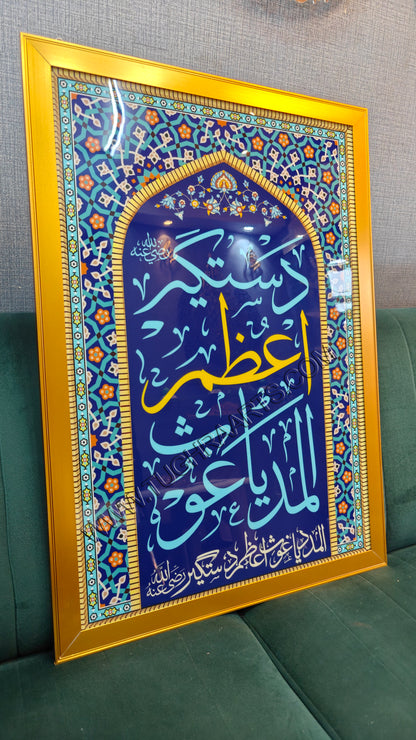 المدد یا غوث
اعظم
دستگیر
رضی اللہ عنہ
المدد یا غوث اعظم دستگیر رضی اللہ عنہ
WWW.TUGHRAARTS.COM